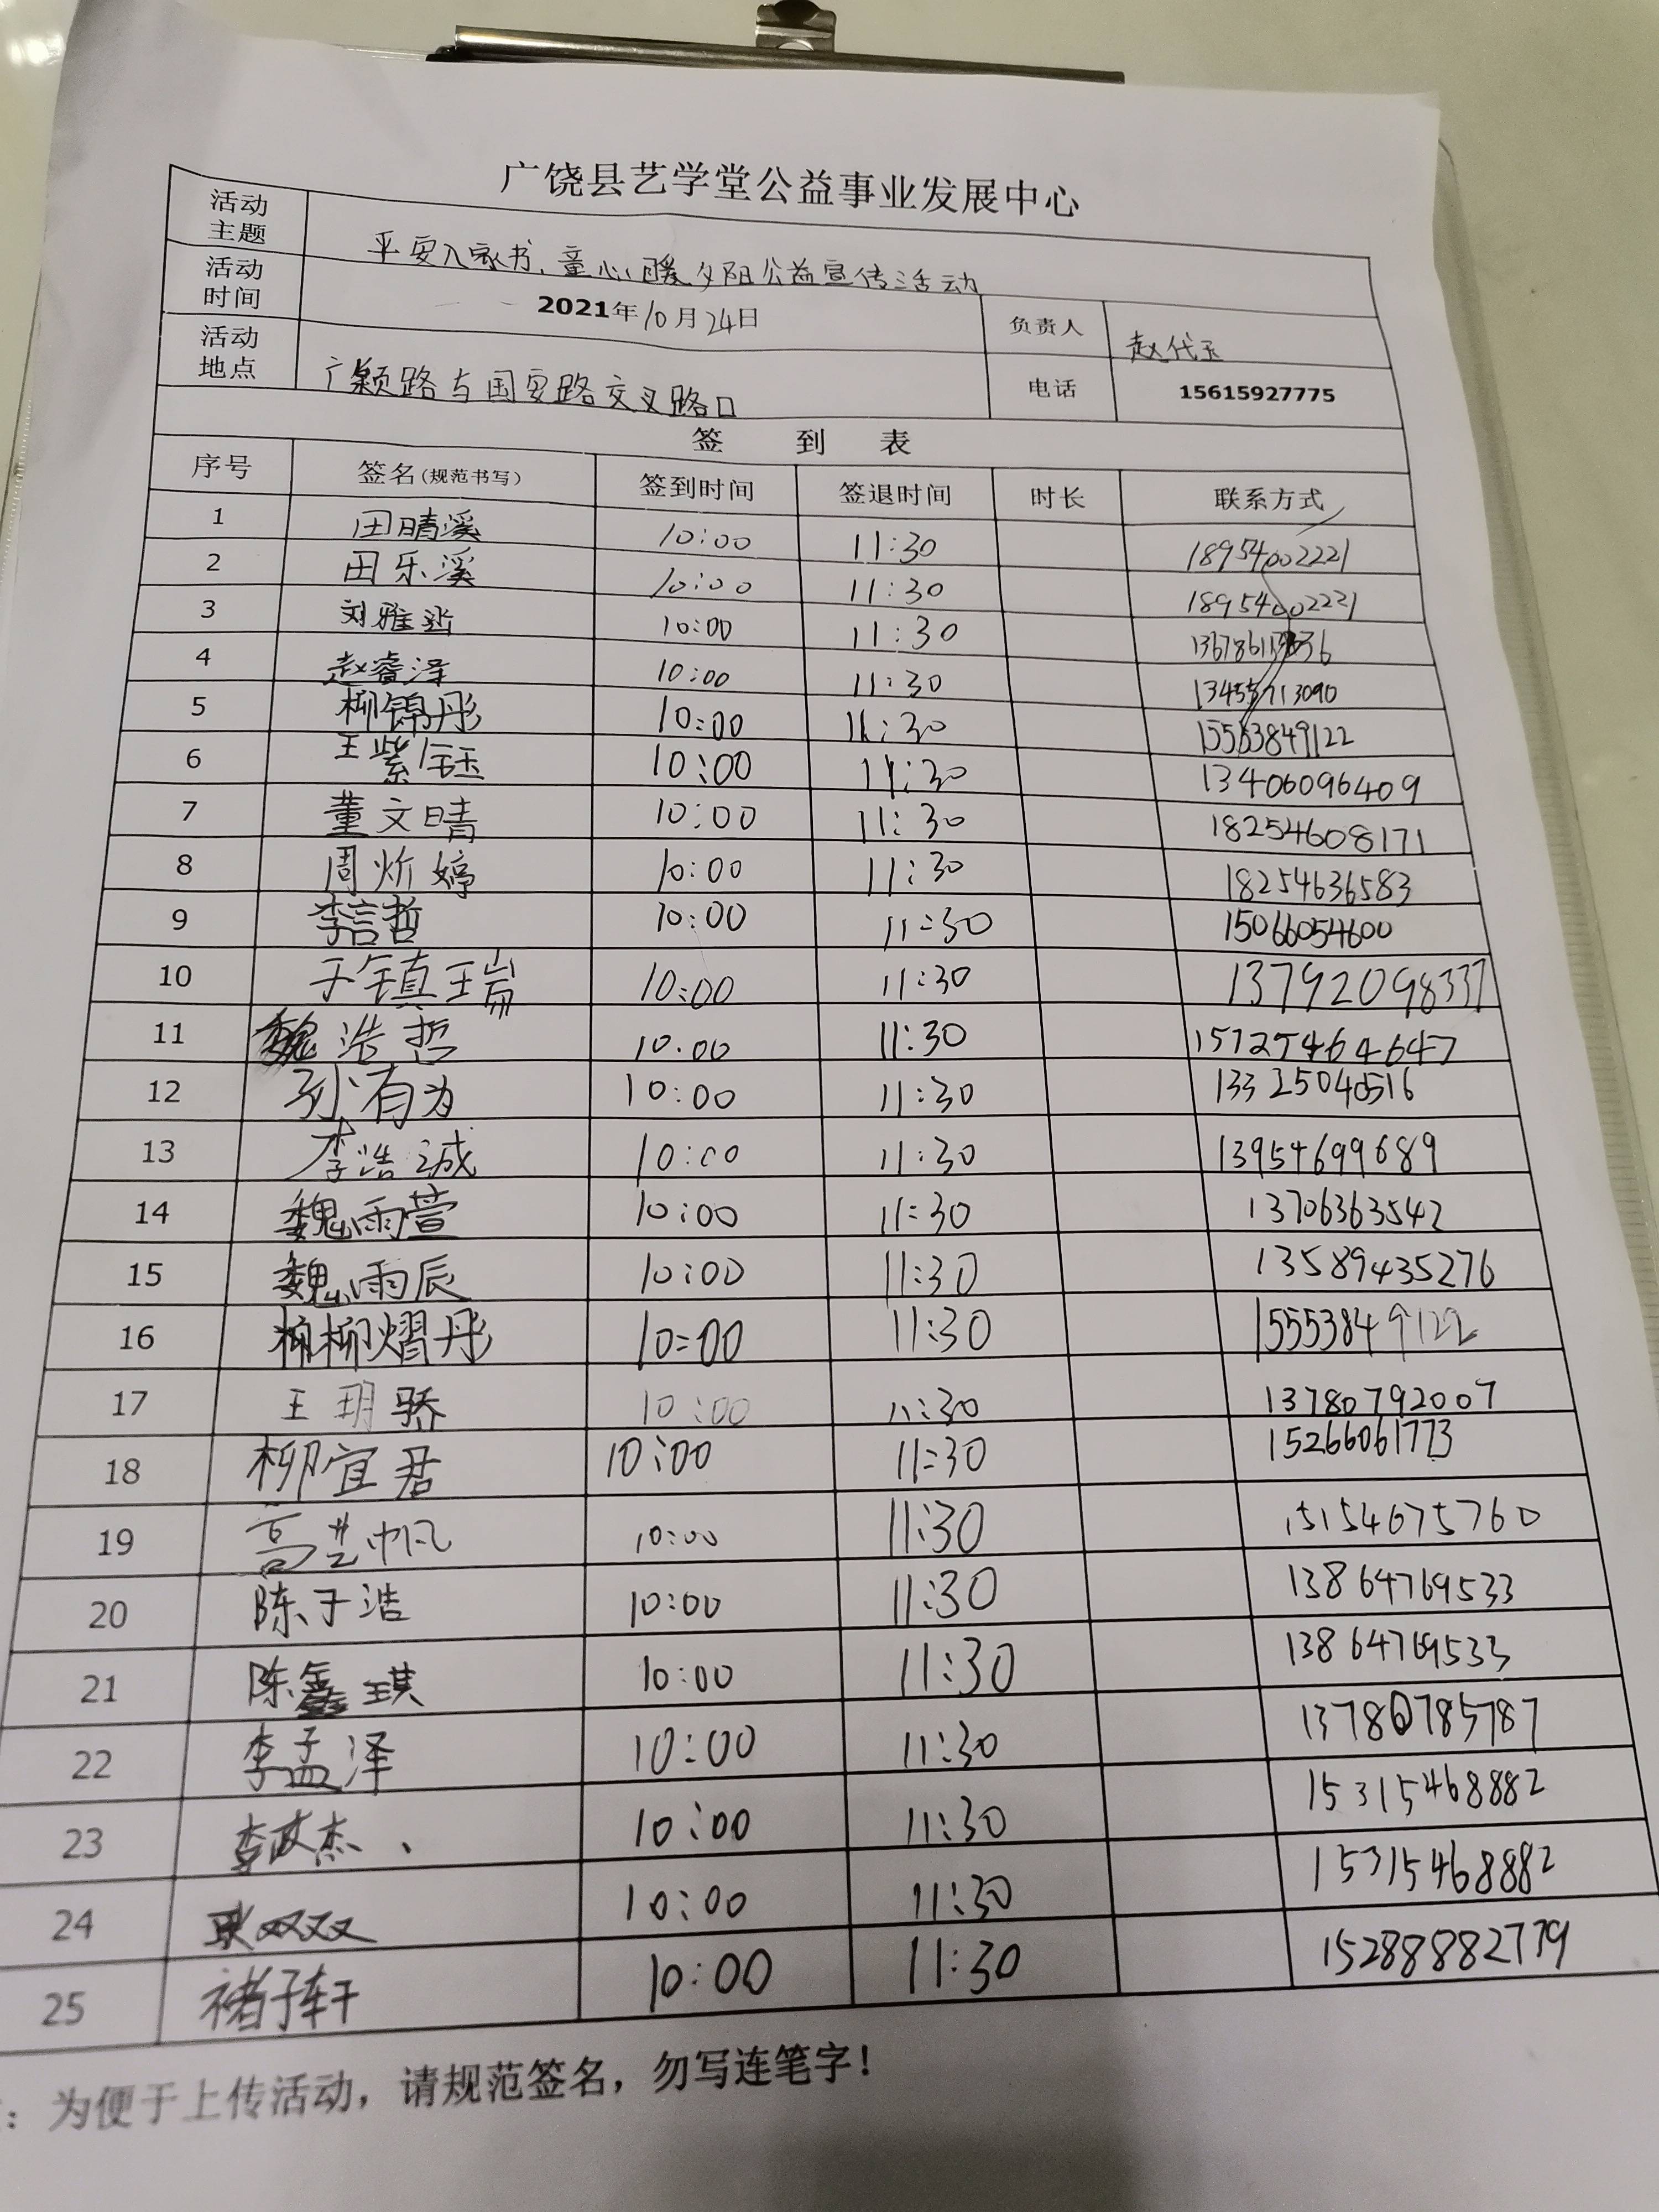 广饶县艺学堂公益事业发展中心
活动主题 平安入家书、童心暖夕阳公益宣传活动
活动时间 2021年10月24日 负责人 赵代玉
活动地点 广颖路与国安路交叉路口 电话 15615927775
签 到 表
序号 签名(规范书写) 签到时间 签退时间 时长 联系方式
1 田晴溪 10:00 11:30 18954002221
2 田乐溪 10:00 11:30 18954002221
3 刘雅 10:00 11:30
4 赵睿泽 10:00 11:30 13455713090
5 柳锦彤 10:00 11:30 15553849122
6 王紫钰 10:00 11:30 13406096409
7 董文晴 10:00 11:30 18254608171
8 周炘婷 10:00 11:30 18254636583
9 李言哲 10:00 11:30 15066054600
10 于镇瑞 10:00 11:30 13792098337
11 魏浩哲 10:00 11:30 15725464647
12 孙有为 10:00 11:30 13325040516
13 李浩诚 10:00 11:30 13954699689
14 魏雨萱 10:00 11:30 13706363542
15 魏雨辰 10:00 11:30 13589435276
16 柳熠彤 10:00 11:30 15553849122
17 王玥骄 10:00 11:30 13780792007
18 柳宜君 10:00 11:30 15266061773
19 高艺帆 10:00 11:30 15154675760
20 陈子浩 10:00 11:30 13864769533
21 陈鑫琪 10:00 11:30 13864769533
22 李孟泽 10:00 11:30 13780785787
23 李政杰 10:00 11:30 15315468882
24 耿双双 10:00 11:30 15315468882
25 褚子轩 10:00 11:30 15288882779
：为便于上传活动，请规范签名，勿写连笔字！